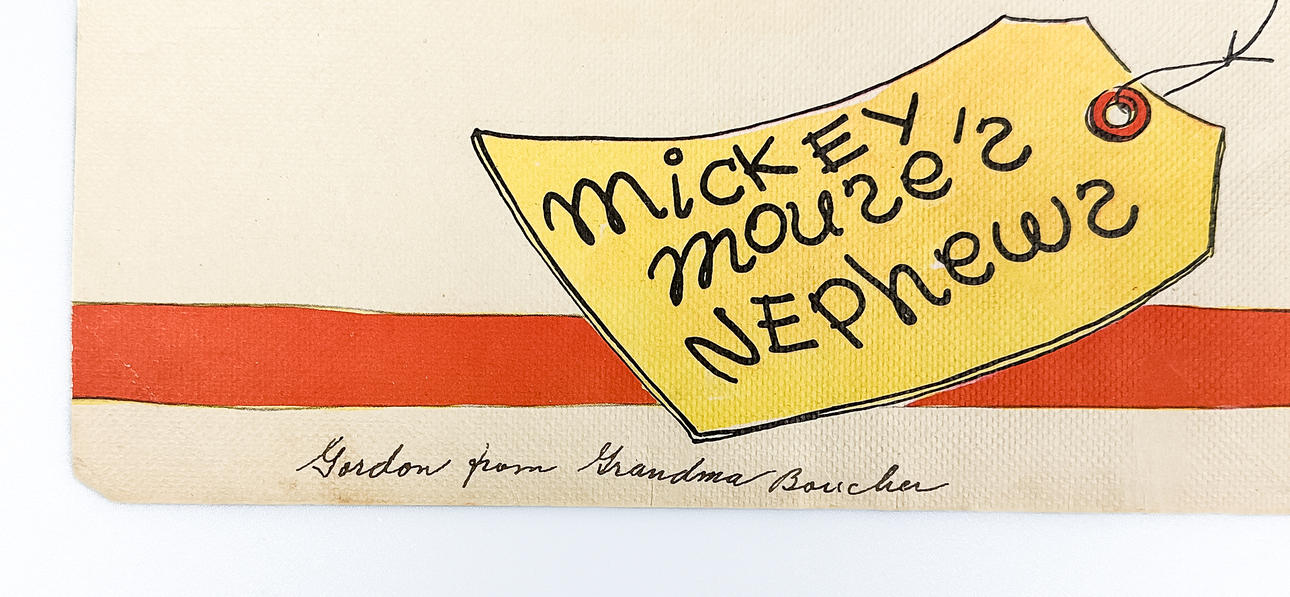 MickEY
mouse's
NEphews
Gordon from Grandma Boucher